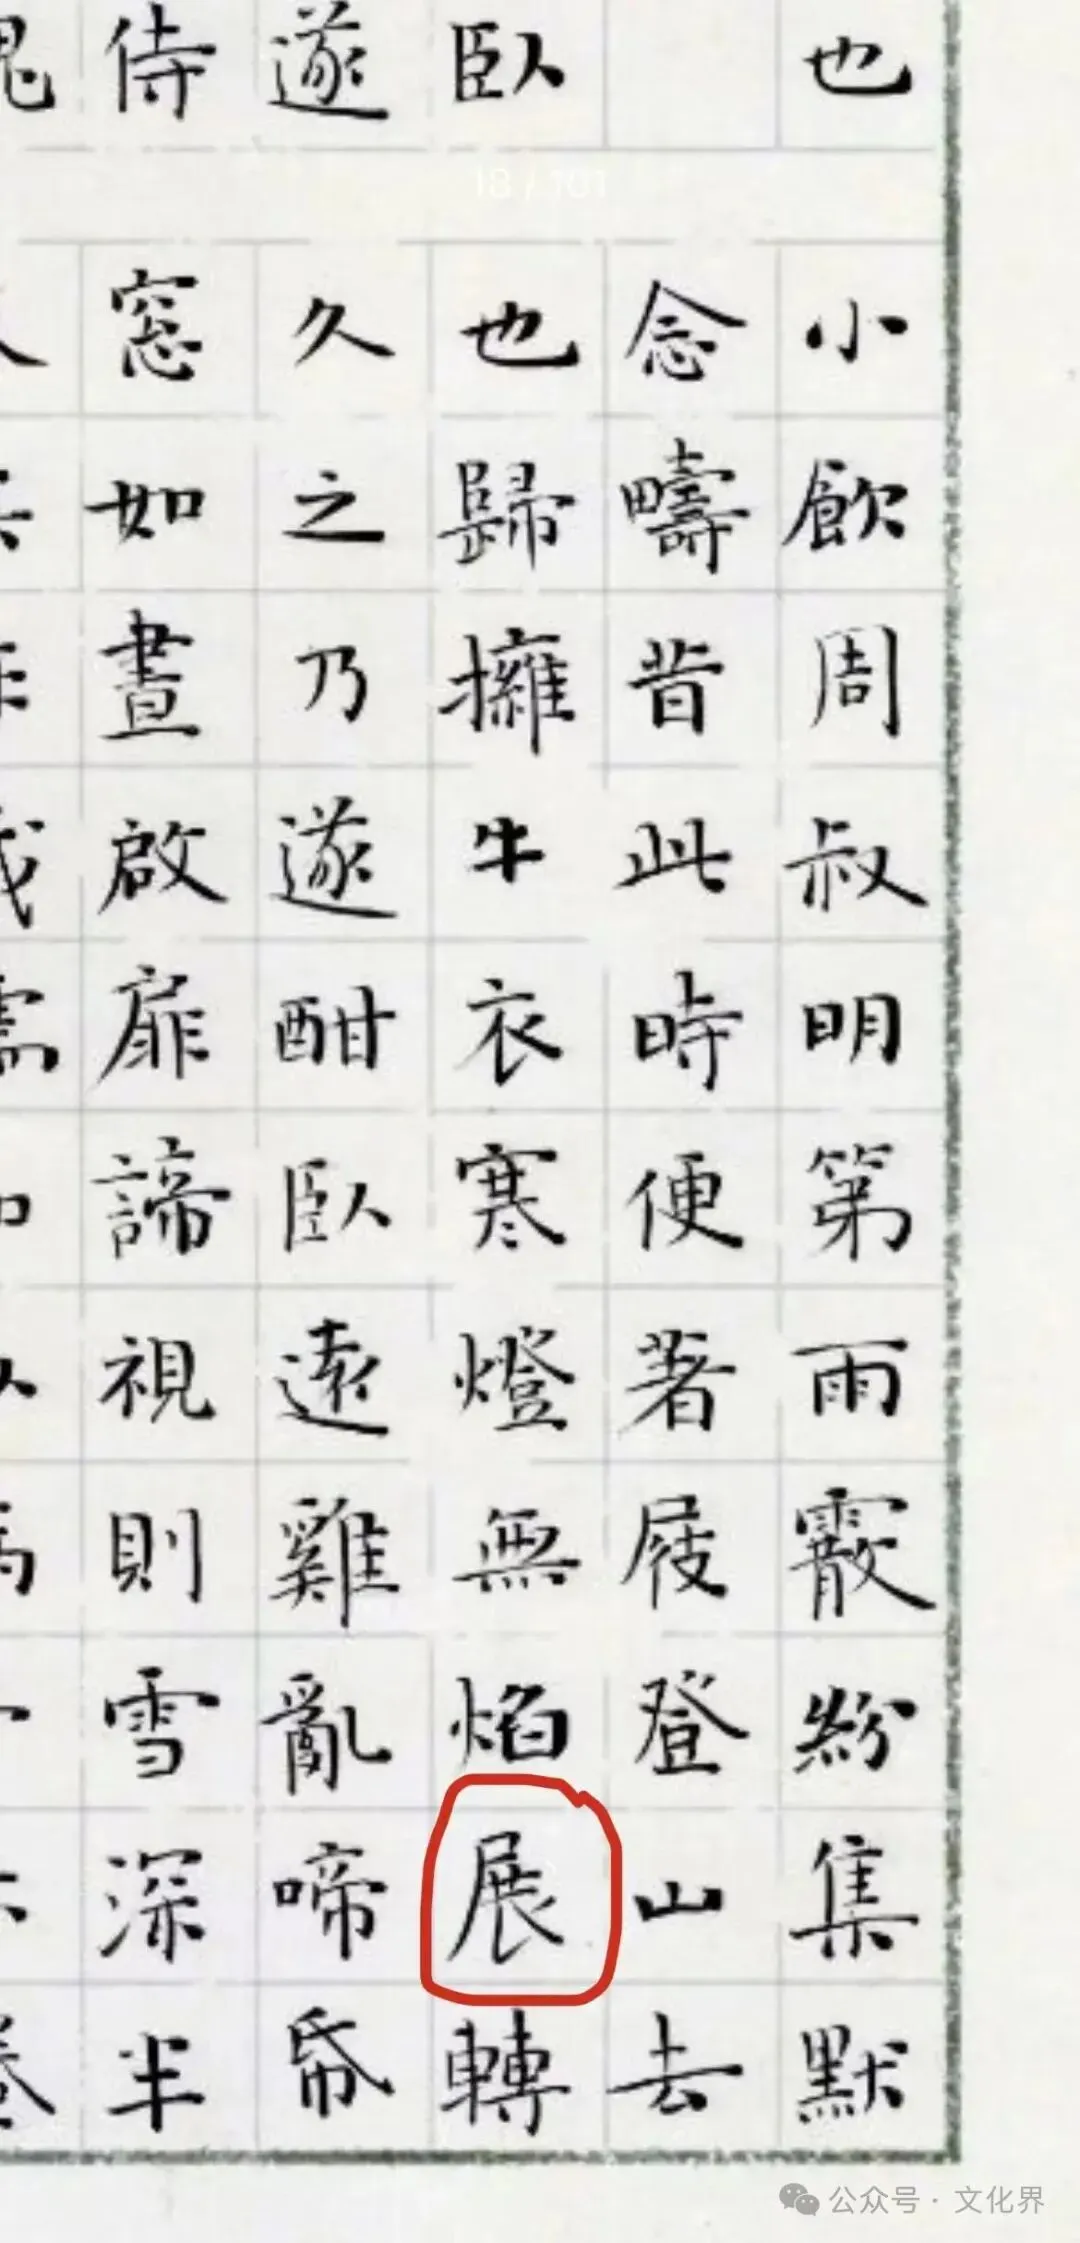 也
臥
遂
侍
18 / 101
小飲周叔明第雨霰紛集默
念疇昔此時便著屐登山去
也歸擁牛衣寒燈無焰展轉
久之乃遂酣臥遠雞亂啼帋
窓如晝啟扉諦視則雪深半
公众号 · 文化界